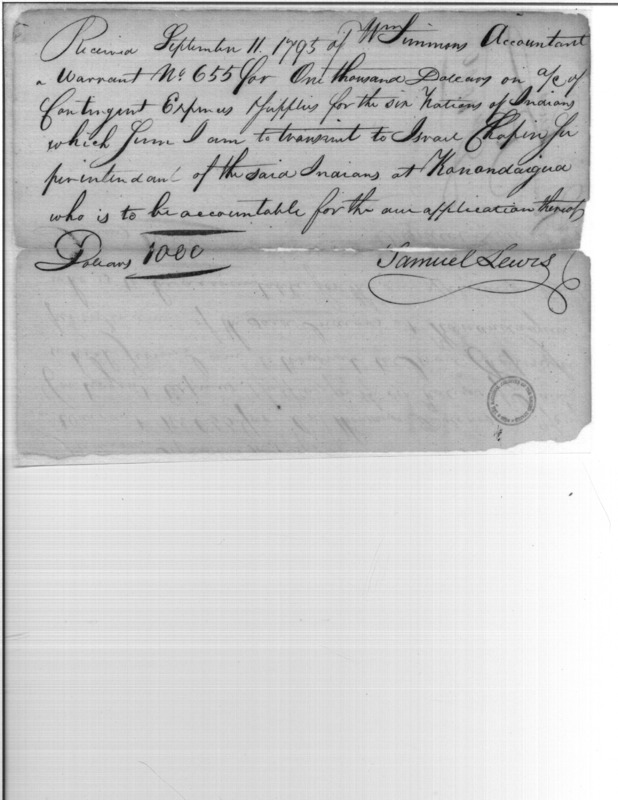 Received September 11. 1795 of Wm Simmons Accountant
a Warrant No 655 for One thousand Dollars on a/c of
Contingent Expences Supplies for the six Nations of Indians
which sum I am to transmit to Israel Chapin Su
perintendant of the said Indians at Kanandaigua
who is to be accountable for the due application thereof
Dollars 1000
Samuel Lewis